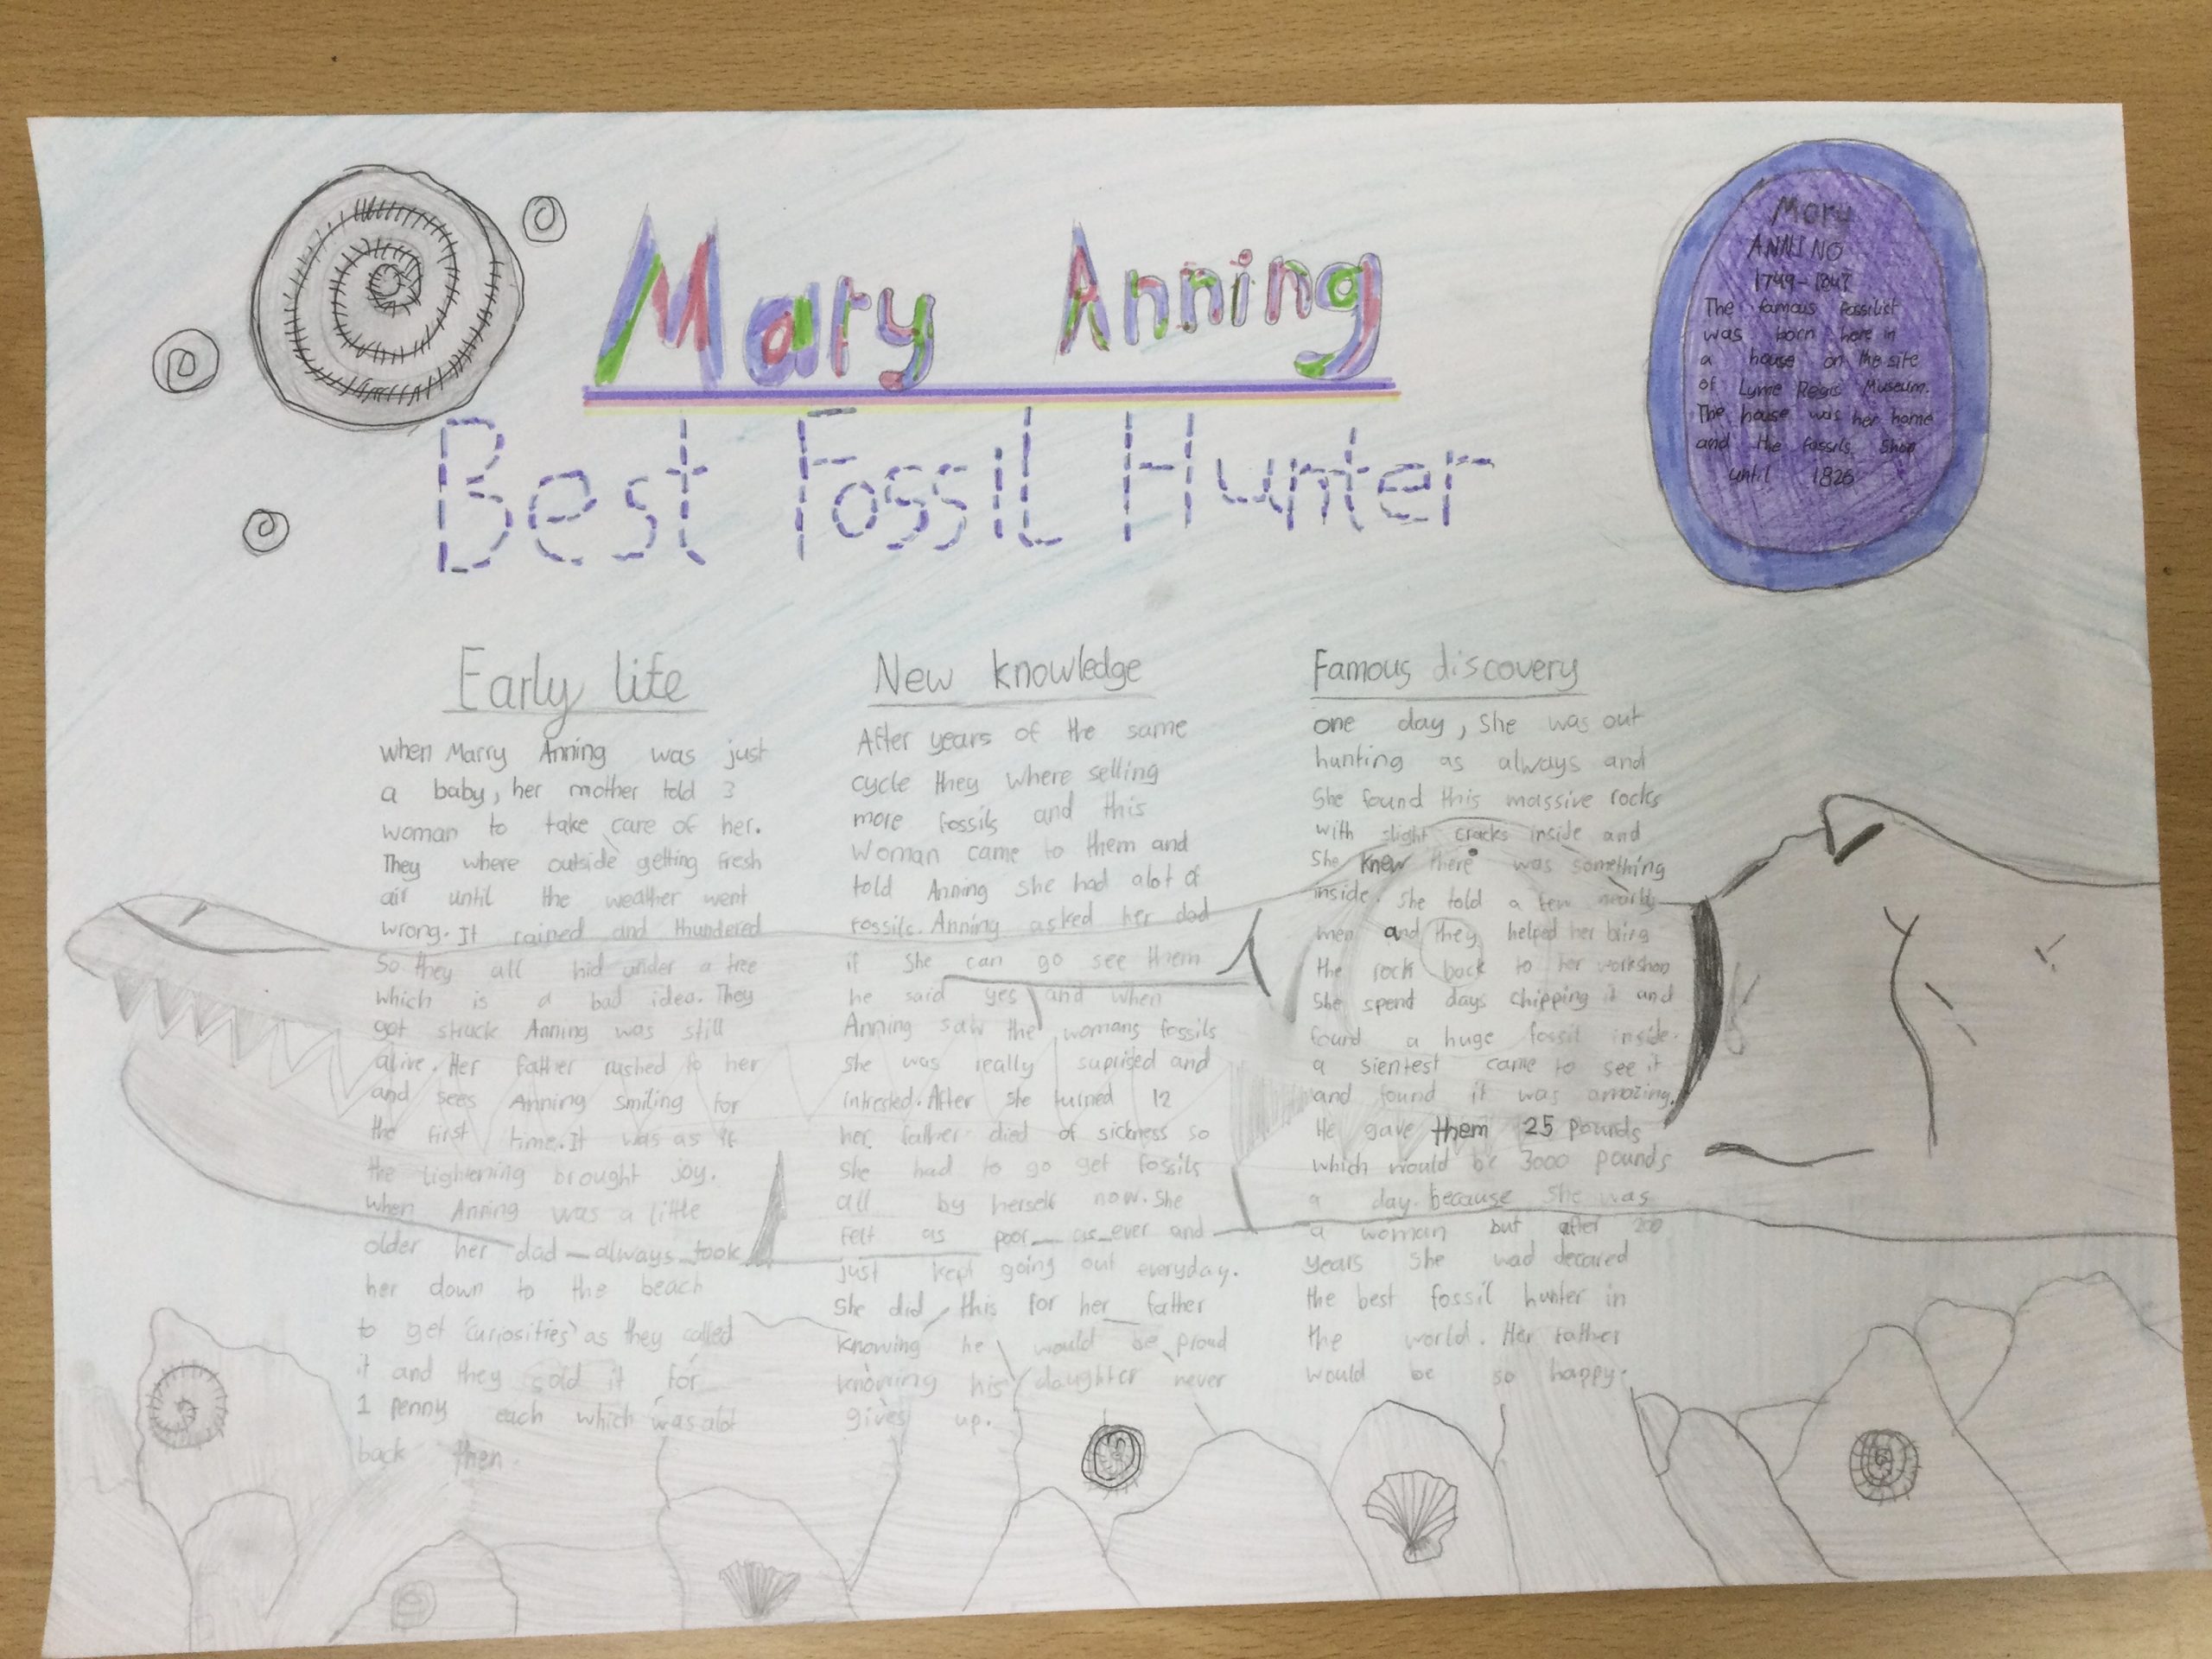 Mary Anning
Best Fossil Hunter
Mary
ANNINO
1749-1847
The famous Fossilist
was born here in
a house on the site
of Lyme Regis Museum.
The house was her home
and the fossils shop
until 1826
Early life
when Marry Anning was just
a baby, her mother told 3
woman to take care of her.
They where outside getting fresh
air until the weather went
wrong. It rained and thundered
So they all hid under a tree
which is a bad idea. They
got struck Anning was still
alive. Her father rushed to her
and sees Anning smiling for
the first time. It was as if
the lightening brought joy.
when Anning was a little
older her dad always took
her down to the beach
to get 'curiosities' as they called
it and they sold it for
1 penny each which was alot
back then.
New knowledge
After years of the same
cycle they where selling
more fossils and this
woman came to them and
told Anning she had alot of
fossils. Anning asked her dad
if she can go see them
he said yes and when
Anning saw the womans fossils
she was really suprised and
intrested. After she turned 12
her father died of sickness so
she had to go get fossils
all by herself now. She
felt as poor as ever and
just kept going out everyday.
She did this for her father
knowing he would be proud
knowing his daughter never
gives up.
Famous discovery
one day, she was out
hunting as always and
She found this massive rocks
with slight cracks inside and
She knew there was something
inside. She told a few nearby
men and they helped her bring
the rock back to her workshop
She spend days chipping it and
found a huge fossil inside.
a sientest came to see it
and found it was amazing.
He gave them 25 pounds
which would be 3000 pounds
a day. because she was
a woman but after 200
years she wad decared
the best fossil hunter in
the world. Her father
would be so happy.